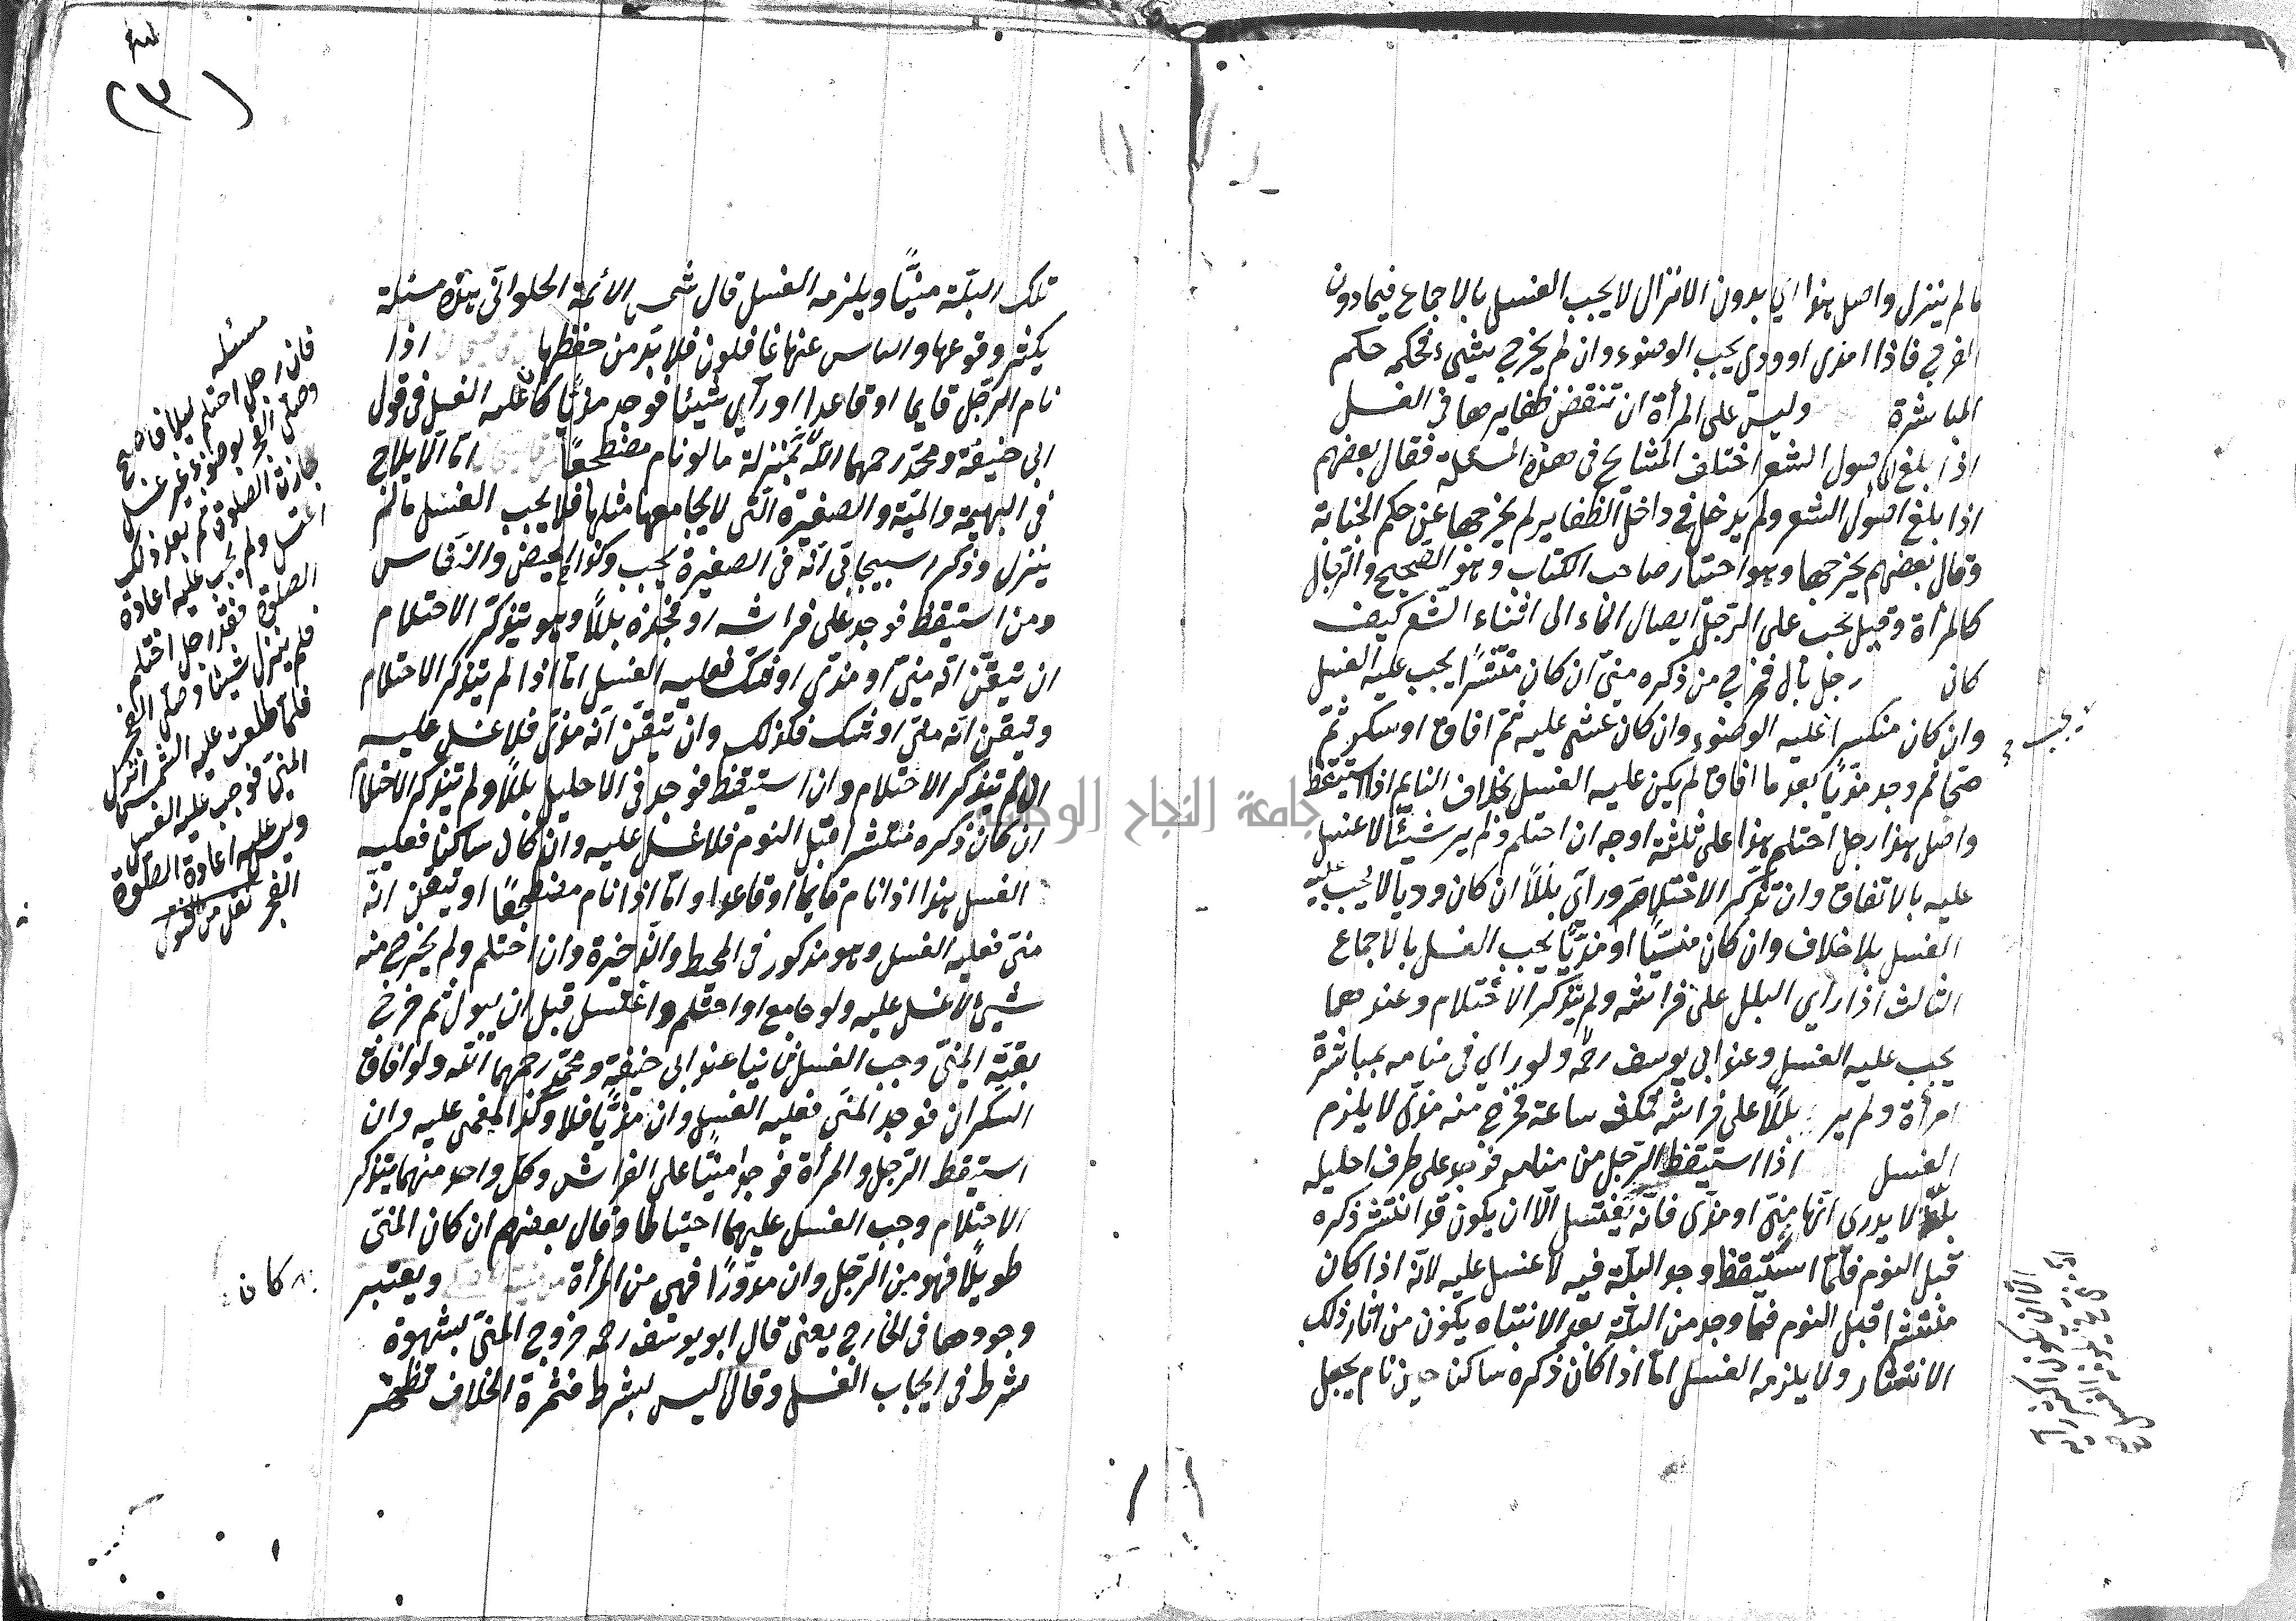 ما لم ينزل واصل هذا اي بدون الانزال لا يجب الغسل بالاجماع فيما دون
الفرج فاذا امذى او ودى يجب الوضوء وان لم يخرج شيء فحكمه حكم
المباشرة وليس على المرأة ان تنقض ظفايرها في الغسل
اذا بلغ الى اصول الشعر اختلف المشايخ في هذه المسئلة فقال بعضهم
اذا بلغ اصول الشعر ولم يدخل في داخل الظفاير لم يخرجها عن حكم الجنابة
وقال بعضهم يخرجها وهو اختيار صاحب الكتاب وهو الصحيح والرجال
كالمرأة وقيل يجب على الرجل ايصال الماء الى اثناء الشعر كيف
كان رجل بال فخرج من ذكره منيّ ان كان منتشرًا يجب عليه الغسل
وان كان منكسرا عليه الوضوء وان كان غشي عليه ثم افاق او سكر ثمّ
صحا ثم وجد مذيًا بعد ما افاق لم يكن عليه الغسل بخلاف النايم اذا استيقظ
واصل هذا رجل احتلم هذا على ثلثة اوجه ان احتلم ولم ير شيئًا لا غسل
عليه بالاتفاق وان تذكّر الاحتلام ورآى بللًا ان كان وديا لا يجب عليه
الغسل بلا خلاف وان كان منيًّا او مذيًّا يجب الغسل بالاجماع
الثالث اذا رأي البلل على فراشه ولم يتذكر الاحتلام وعندهما
يجب عليه الغسل وعند ابي يوسف رحمه ولو راي في منامه مباشرة
امرأة ولم ير بللًا على فراشه فمكث ساعة فخرج منه مذى لا يلزم
الغسل اذا استيقظ الرجل من منامه فوجد على طرف احليله
بلة لا يدرى انّها منيّ او مذى فانّه يغتسل الّا ان يكون قد انتشر ذكره
قبل النوم فلمّا استيقظ وجد البلّة فيه لا غسل عليه لانّه اذا كان
منتشرا قبل النوم فما وجد من البلّة بعد الانتباه يكون من اثار ذلك
الانتشار ولا يلزمه الغسل امّا اذا كان ذكره ساكنا حين نام يجعل
يجب
تلك البلّة منيًّا ويلزمه الغسل قال شمس الائمة الحلواني هذه مسئلة
يكثر وقوعها والناس عنها غافلون فلا بدّ من حفظها اذا
نام الرّجل قايما او قاعدا او رآي شيئا فوجد مذيًا كان عليه الغسل في قول
ابي حنيفة ومحمّد رحمهما اللّه بمنزلة ما لو نام مضطجعًا امّا الايلاج
في البهيمة والميّة والصغيرة الّتي لا يجامعها مثلها فلا يجب الغسل ما لم
ينزل وذكر اسبيجابي انّه في الصغيرة يجب وكذا الحيض والنفاس
ومن استيقظ فوجد على فراشه او فخذه بللًا وهو يتذكّر الاحتلام
ان تيقّن انّه منيّ او مذى او شك فعليه الغسل امّا اذا لم يتذكر الاحتلام
وتيقن انّه منيّ او شك فكذلك وان تيقّن انّه مذى فلا غسل عليه
اذا لم يتذكر الاحتلام وان استيقظ فوجد في الاحليل بللًا ولم يتذكر الاحتلام
ان كان ذكره منتشرا قبل النوم فلا غسل عليه وان كان ساكنا فعليه
الغسل هذا اذا نام قايما او قاعدا وامّا اذا نام مضطجعًا او تيقن انّه
منيّ فعليه الغسل وهو مذكور في المحيط والذّخيرة وان احتلم ولم يخرج منه
شيئ لا غسل عليه ولو جامع او احتلم واغتسل قبل ان يبول ثم خرج
بقيّة المنيّ وجب الغسل ثانيا عند ابي حنيفة ومحمّد رحمهما اللّه ولو افاق
السكران فوجد المنيّ فعليه الغسل وان مذيًّا فلا وكذا المغمى عليه وان
استيقظ الرّجل والمرأة فوجدا منيًّا على الفراش وكل واحد منهما يتذكر
الاحتلام وجب الغسل عليهما احتياطا وقال بعضهم ان كان المنيّ
طويلًا فهو من الرّجل وان مدوّرًا فهي من المرأة ويعتبر
وجودهما في الخارج يعني قال ابو يوسف رحمه خروج المنيّ بشهوة
شرط في ايجاب الغسل وقالا ليس بشرط فثمرة الخلاف تظهر
مسئله
فان رجل احتلم ليلا فاصبح
وصلّى الفجر بوضوء غير غسل
جازت الصلوة ثم بعد ذلك
اغتسل ولم يجب عليه اعادة
الصلوة رجل احتلم
فلم ينزل شيئا وصلّى الفجر
فلما طلعت عليه الشمس انزل
المنيّ فوجب عليه الغسل
وليس عليه اعادة الصلوة
الفجر نقل من
كان
(٣)
جامعة النجاح الوطنية